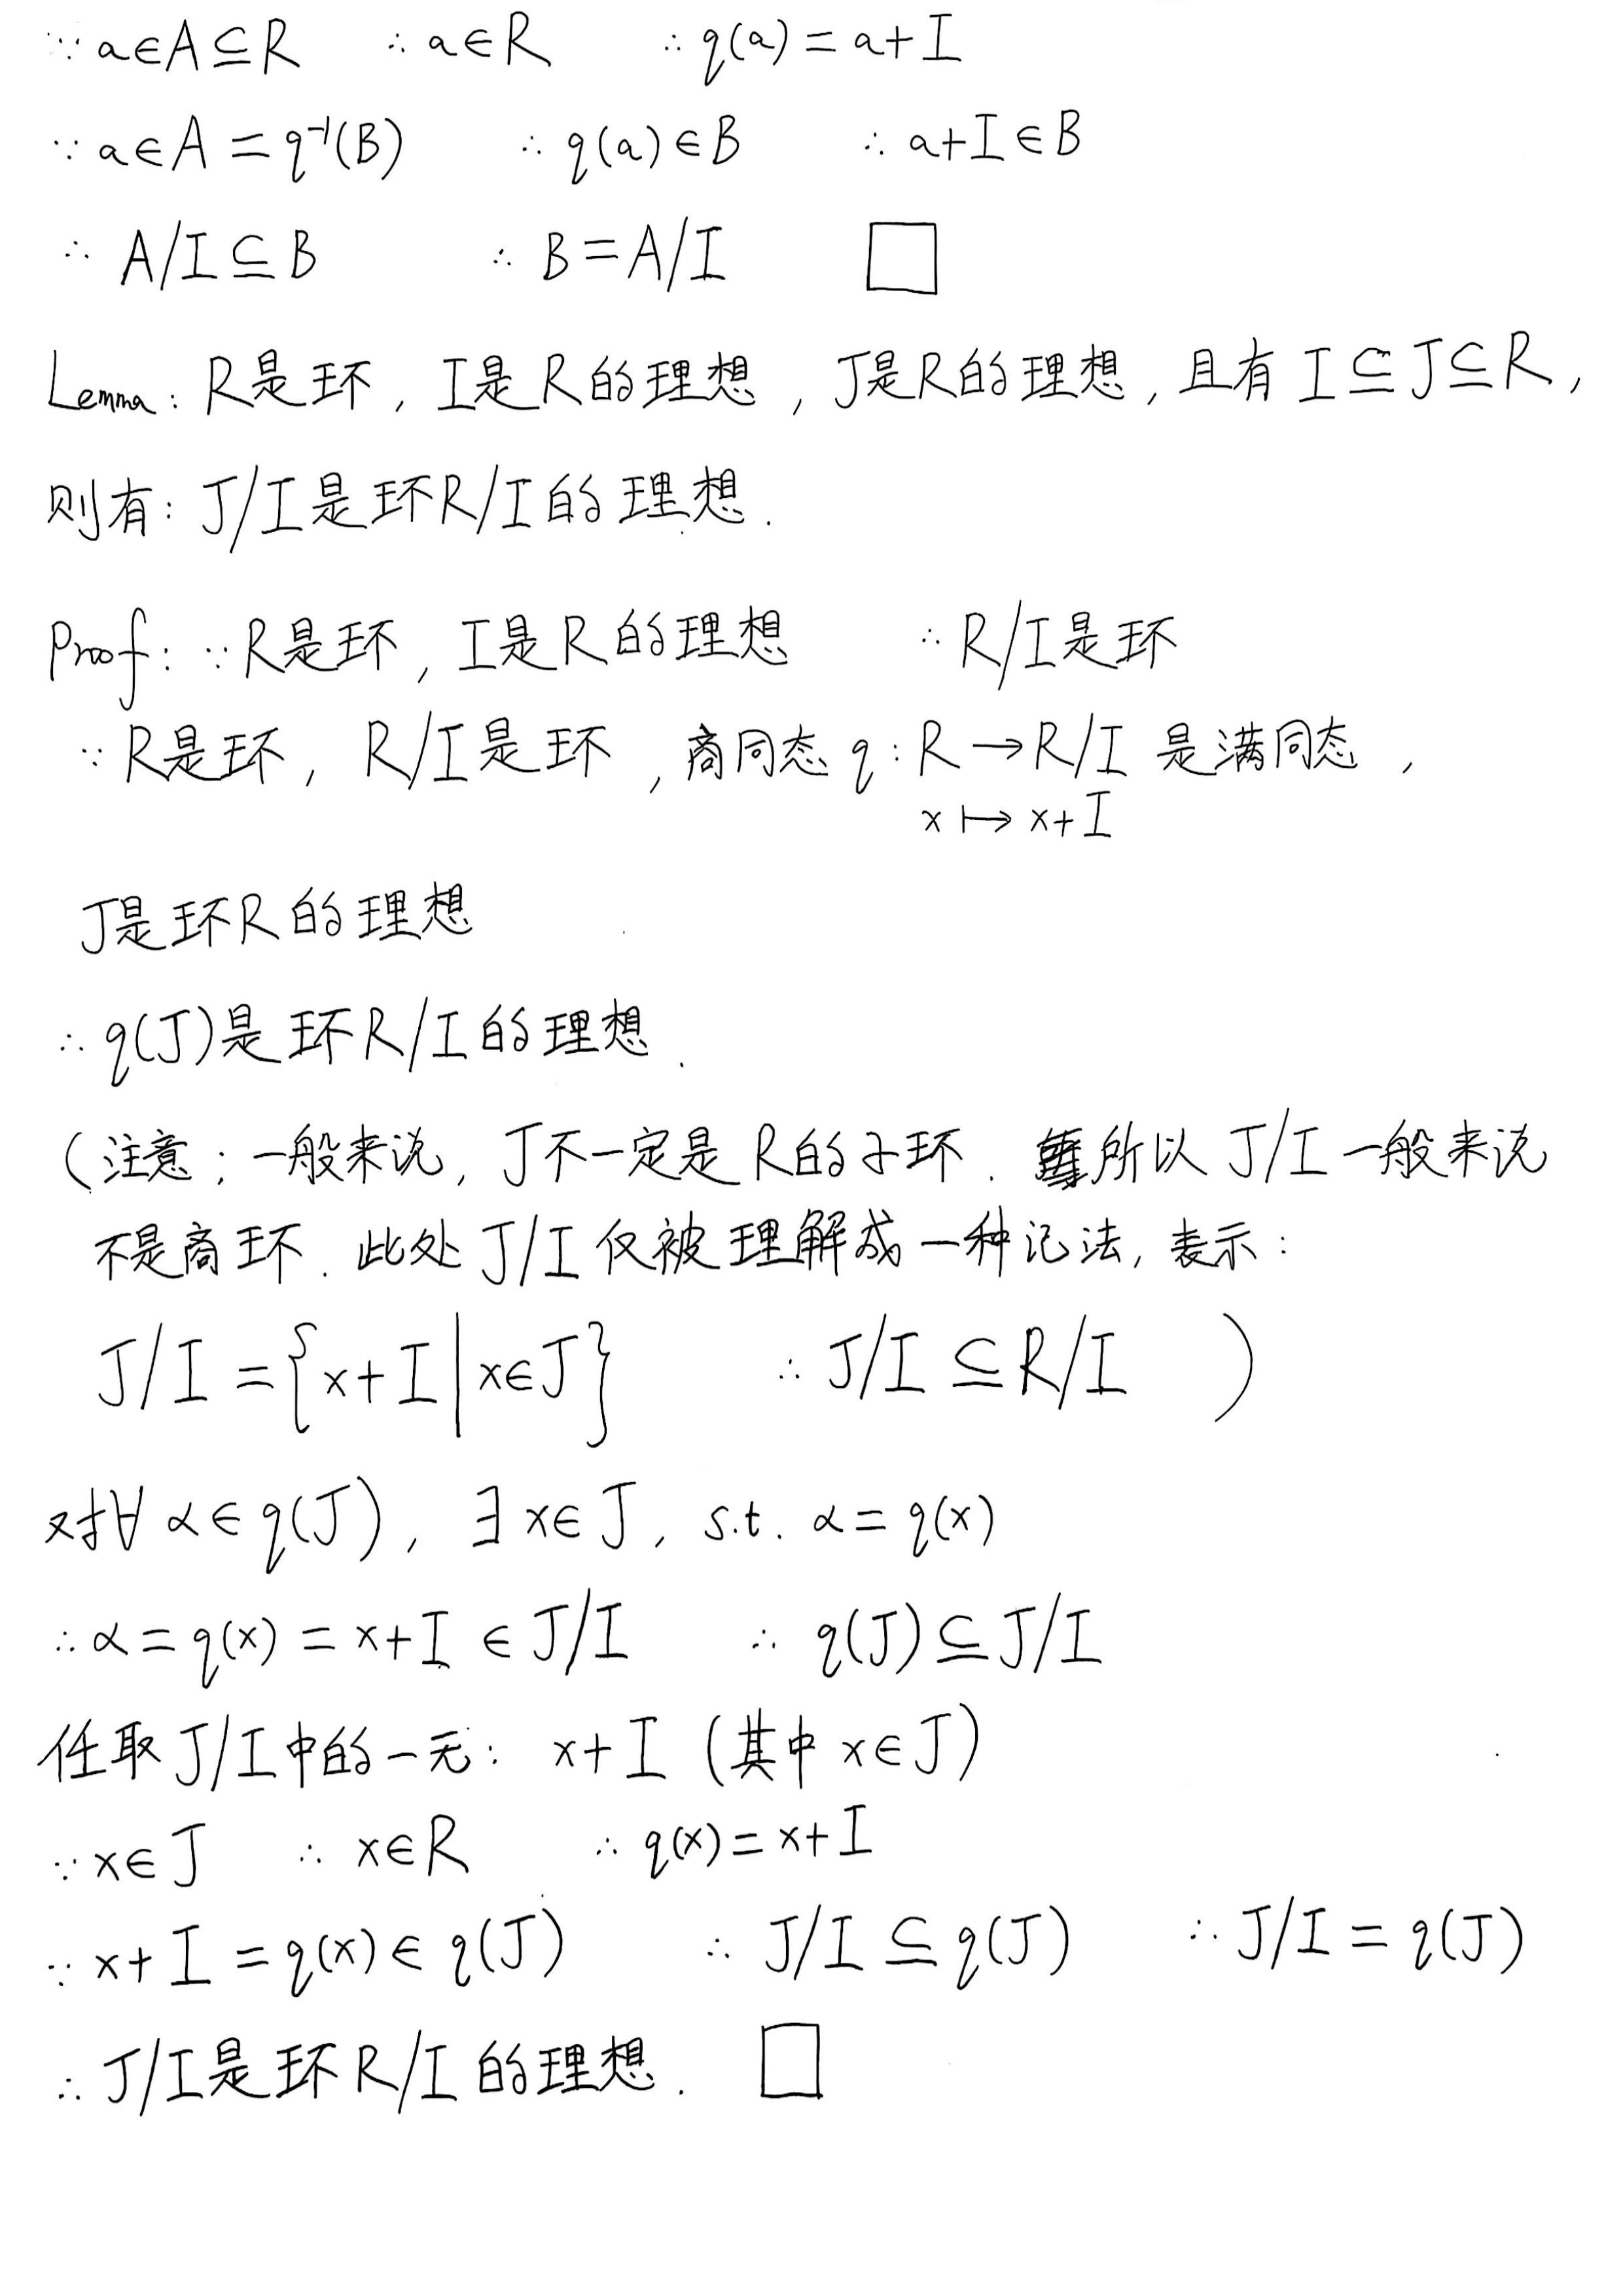 ∵ a∈A⊆R ∴ a∈R ∴ q(a)=a+I
∵ a∈A=q⁻¹(B) ∴ q(a)∈B ∴ a+I∈B
∴ A/I⊆B ∴ B=A/I □
Lemma: R是环, I是R的理想, J是R的理想, 且有 I⊆J⊆R,
则有: J/I是环R/I的理想.
Proof: ∵R是环, I是R的理想 ∴R/I是环
∵R是环, R/I是环, 商同态 q: R→R/I 是满同态,
x↦x+I
J是环R的理想
∴ q(J)是环R/I的理想.
(注意: 一般来说, J不一定是R的子环. 所以 J/I 一般来说
不是商环. 此处 J/I 仅被理解成一种记法, 表示:
J/I={x+I|x∈J} ∴ J/I⊆R/I )
对∀α∈q(J), ∃x∈J, s.t. α=q(x)
∴α=q(x)=x+I∈J/I ∴ q(J)⊆J/I
任取J/I中的一元: x+I (其中 x∈J)
∵x∈J ∴ x∈R ∴ q(x)=x+I
∵ x+I=q(x)∈q(J) ∴ J/I⊆q(J) ∴ J/I=q(J)
∴ J/I是环R/I的理想. □